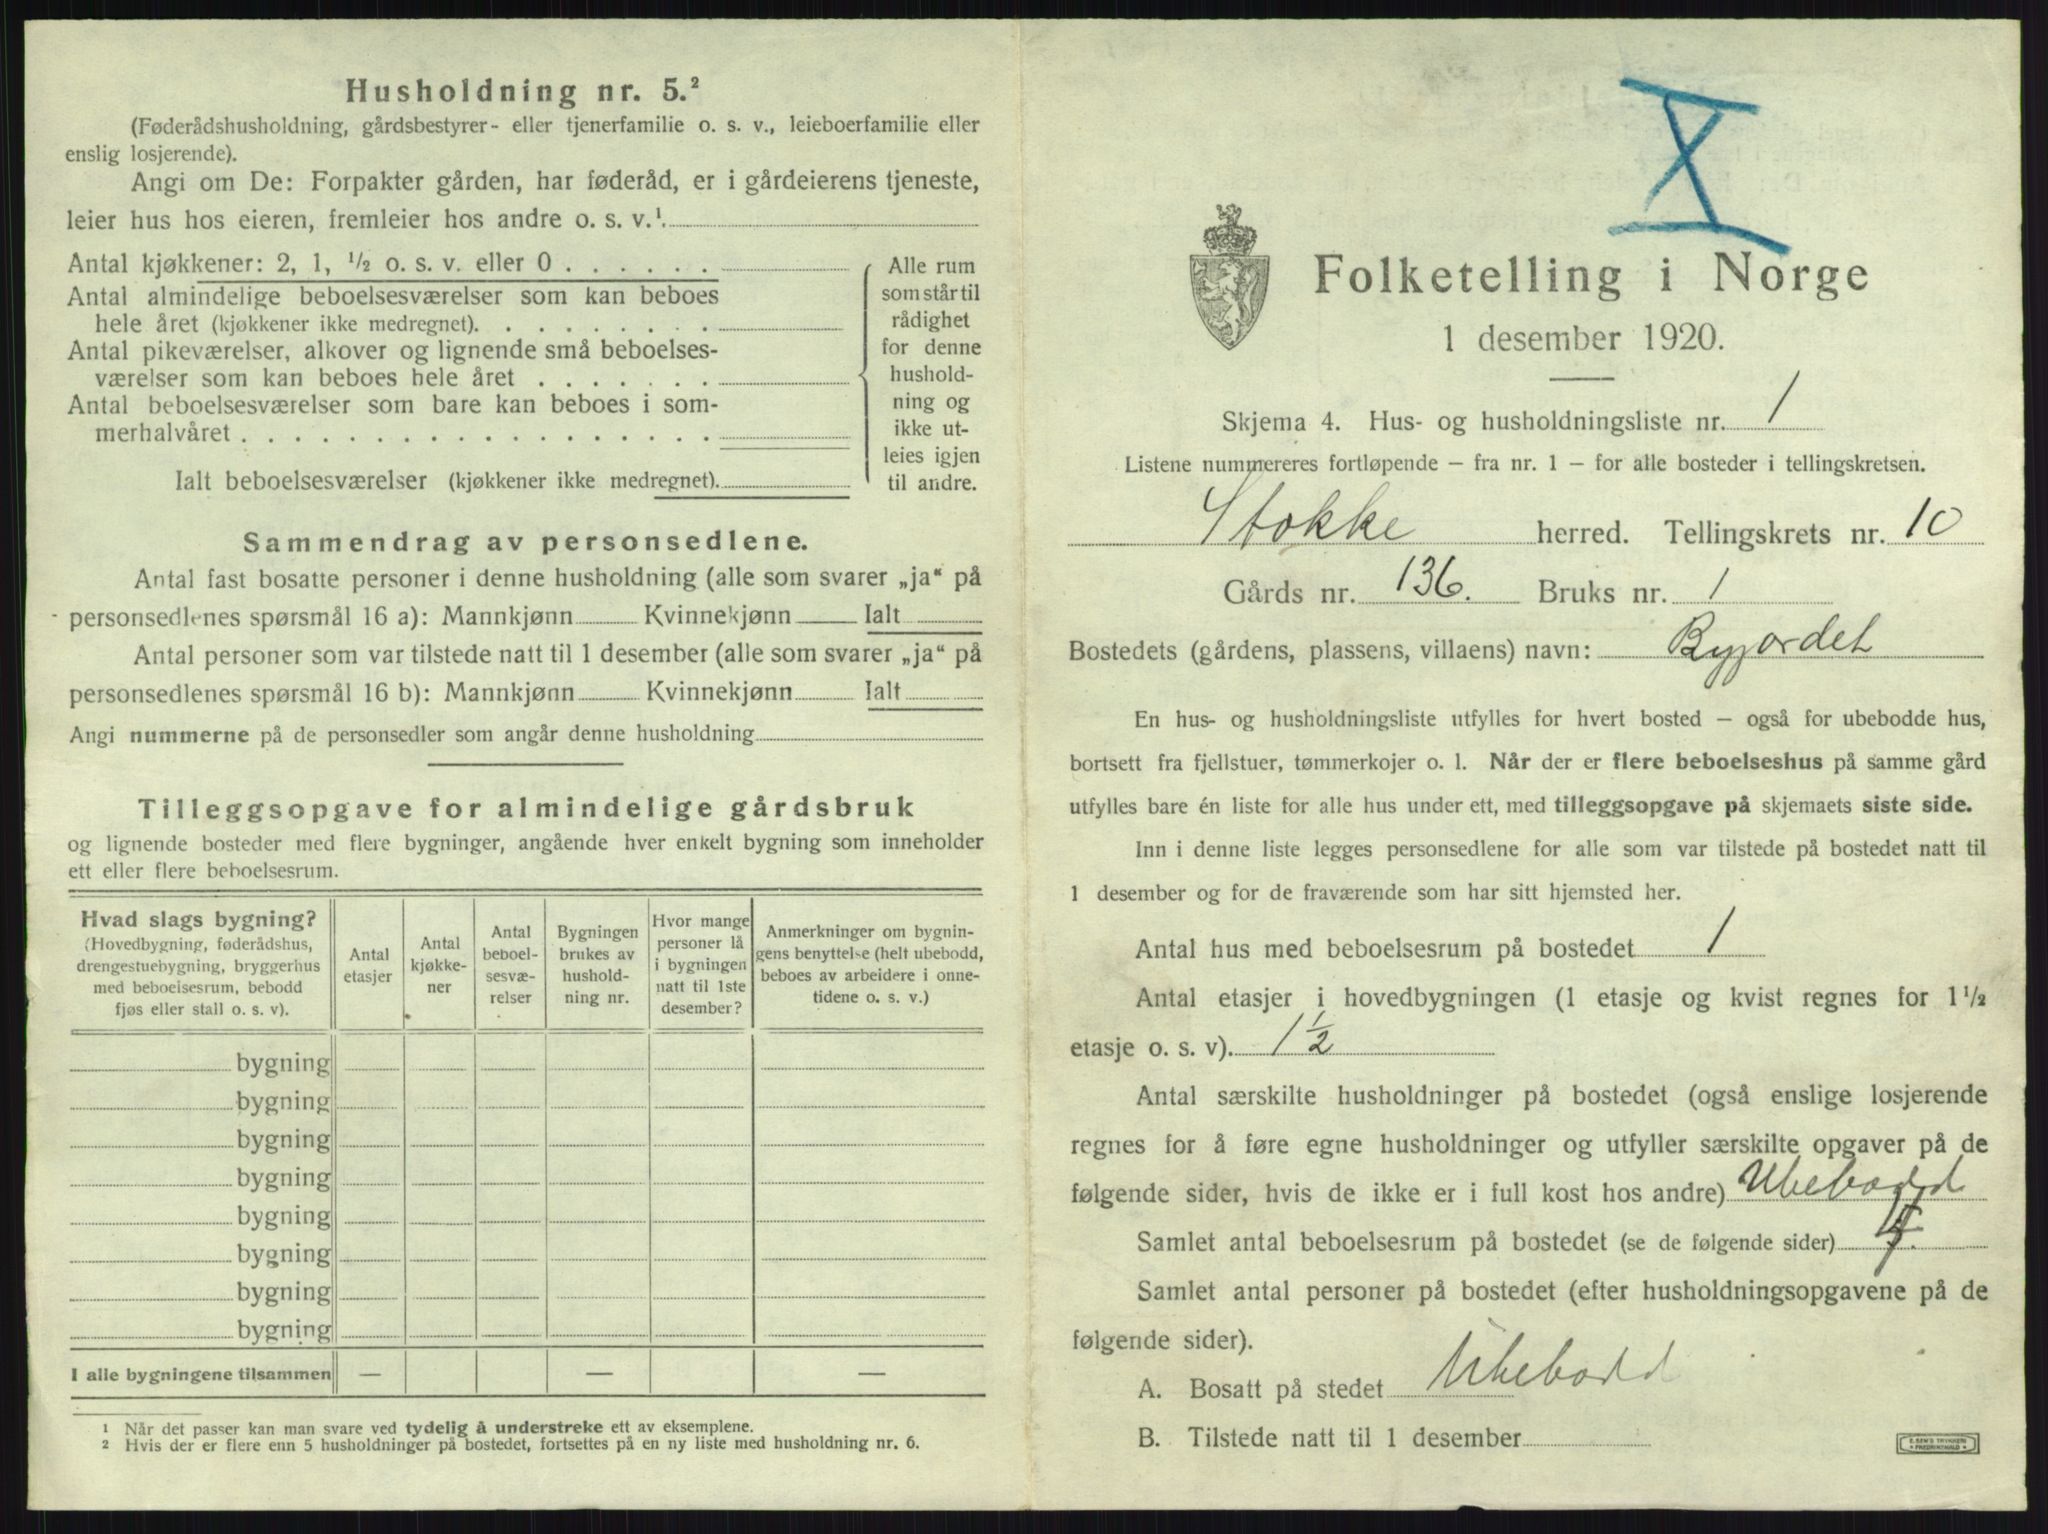 Husholdning nr. 5.²
(Føderådshusholdning, gårdsbestyrer- eller tjenerfamilie o. s. v., leieboerfamilie eller
enslig losjerende).
Angi om De: Forpakter gården, har føderåd, er i gårdeierens tjeneste,
leier hus hos eieren, fremleier hos andre o. s. v.¹
Antal kjøkkener: 2, 1, ½ o. s. v. eller 0 . . . . . .
Antal almindelige beboelsesværelser som kan beboes
hele året (kjøkkener ikke medregnet). . . . . . . . .
Antal pikeværelser, alkover og lignende små beboelses-
værelser som kan beboes hele året . . . . . . .
Antal beboelsesværelser som bare kan beboes i som-
merhalvåret . . . . . . . . . . . . . . . . . .
Ialt beboelsesværelser (kjøkkener ikke medregnet).
Alle rum
som står til
rådighet
for denne
hushold-
ning og
ikke ut-
leies igjen
til andre.
Sammendrag av personsedlene.
Antal fast bosatte personer i denne husholdning (alle som svarer „ja“ på
personsedlenes spørsmål 16 a): Mannkjønn Kvinnekjønn Ialt
Antal personer som var tilstede natt til 1 desember (alle som svarer „ja“ på
personsedlenes spørsmål 16 b): Mannkjønn Kvinnekjønn Ialt
Angi nummerne på de personsedler som angår denne husholdning
Tilleggsopgave for almindelige gårdsbruk
og lignende bosteder med flere bygninger, angående hver enkelt bygning som inneholder
ett eller flere beboelsesrum.
Hvad slags bygning?
(Hovedbygning, føderådshus,
drengestuebygning, bryggerhus
med beboelsesrum, bebodd
fjøs eller stall o. s. v).
Antal
etasjer
Antal
kjøkke-
ner
Antal
beboel-
sesvæ-
relser
Bygningen
brukes av
hushold-
ning nr.
Hvor mange
personer lå
i bygningen
natt til 1ste
desember?
Anmerkninger om bygnin-
gens benyttelse (helt ubebodd,
beboes av arbeidere i onne-
tidene o. s. v.)
bygning
bygning
bygning
bygning
bygning
bygning
bygning
bygning
I alle bygningene tilsammen — — —
¹ Når det passer kan man svare ved tydelig å understreke ett av eksemplene.
² Hvis der er flere enn 5 husholdninger på bostedet, fortsettes på en ny liste med husholdning nr. 6.
X
Folketelling i Norge
1 desember 1920.
Skjema 4. Hus- og husholdningsliste nr. 1
Listene nummereres fortløpende – fra nr. 1 – for alle bosteder i tellingskretsen.
Stokke herred. Tellingskrets nr. 10
Gårds nr. 136. Bruks nr. 1
Bostedets (gårdens, plassens, villaens) navn: Ryjordet
En hus- og husholdningsliste utfylles for hvert bosted – også for ubebodde hus,
bortsett fra fjellstuer, tømmerkojer o. l. Når der er flere beboelseshus på samme gård
utfylles bare én liste for alle hus under ett, med tilleggsopgave på skjemaets siste side.
Inn i denne liste legges personsedlene for alle som var tilstede på bostedet natt til
1 desember og for de fraværende som har sitt hjemsted her.
Antal hus med beboelsesrum på bostedet 1
Antal etasjer i hovedbygningen (1 etasje og kvist regnes for 1½
etasje o. s. v). 1½
Antal særskilte husholdninger på bostedet (også enslige losjerende
regnes for å føre egne husholdninger og utfyller særskilte opgaver på de
følgende sider, hvis de ikke er i full kost hos andre) Ubebodd
Samlet antal beboelsesrum på bostedet (se de følgende sider)
Samlet antal personer på bostedet (efter husholdningsopgavene på de
følgende sider).
A. Bosatt på stedet Ubebodd
B. Tilstede natt til 1 desember
E. SEM'S TRYKKERI
FREDRIKSHALD